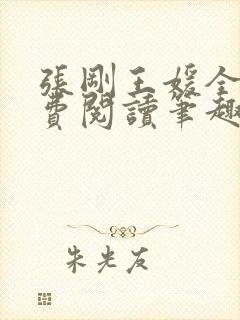 張剛王媛全
費閱讀筆趣
朱光友